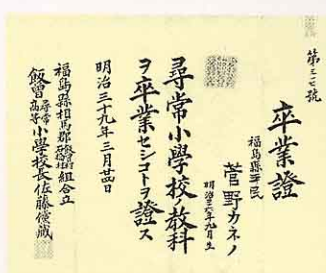 第三七號
卒業證
福島縣平民
菅野カネノ
明治二六年九月生
尋常小學校ノ教科
ヲ卒業セシコトヲ證ス
明治三十九年三月廿四日
福島縣相馬郡飯曾組合立
飯曾尋常高等小學校長佐藤儀威